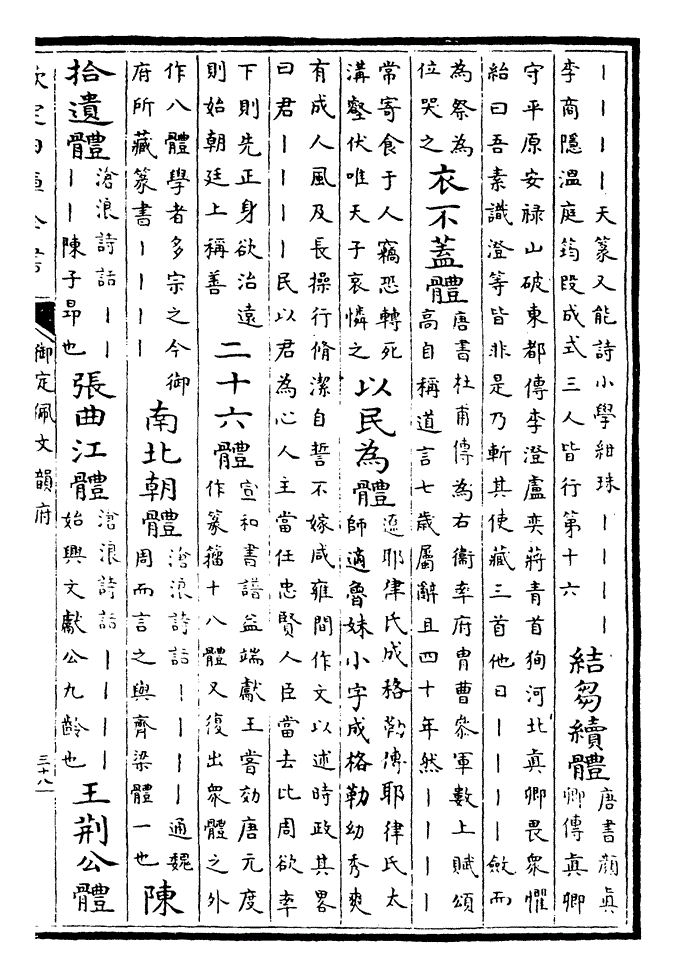 丨丨丨丨天篆又能詩小學紺珠丨丨丨丨
李商隱溫庭筠段成式三人皆行第十六
結芻續體
唐書顏真
卿傳真卿
守平原安祿山破東都傳李澄盧奕蔣青首狥河北真卿畏衆懼
紿曰吾素識澄等皆非是乃斬其使藏三首他日丨丨丨丨斂而
為祭為
位哭之
衣不蓋體
唐書杜甫傳為右衞率府胄曹參軍數上賦頌
高自稱道言七歲屬辭且四十年然丨丨丨丨
常寄食于人竊恐轉死
溝壑伏唯天子哀憐之
以民為體
遼耶律氏成格勒傳耶律氏太
師適魯妹小字成格勒幼秀爽
有成人風及長操行脩潔自誓不嫁咸雍間作文以述時政其畧
曰君丨丨丨丨民以君為心人主當任忠賢人臣當去比周欲率
下則先正身欲治遠
則始朝廷上稱善
二十六體
宣和書譜益端獻王嘗効唐元度
作篆籀十八體又復出衆體之外
作八體學者多宗之今御
府所藏篆書丨丨丨丨
南北朝體
滄浪詩話丨丨丨丨通魏
周而言之與齊梁體一也
陳
拾遺體
滄浪詩話丨丨
丨丨陳子昂也
張曲江體
滄浪詩話丨丨丨丨
始興文獻公九齡也
王荆公體
欽定四庫全書
御定佩文韻府
三十八